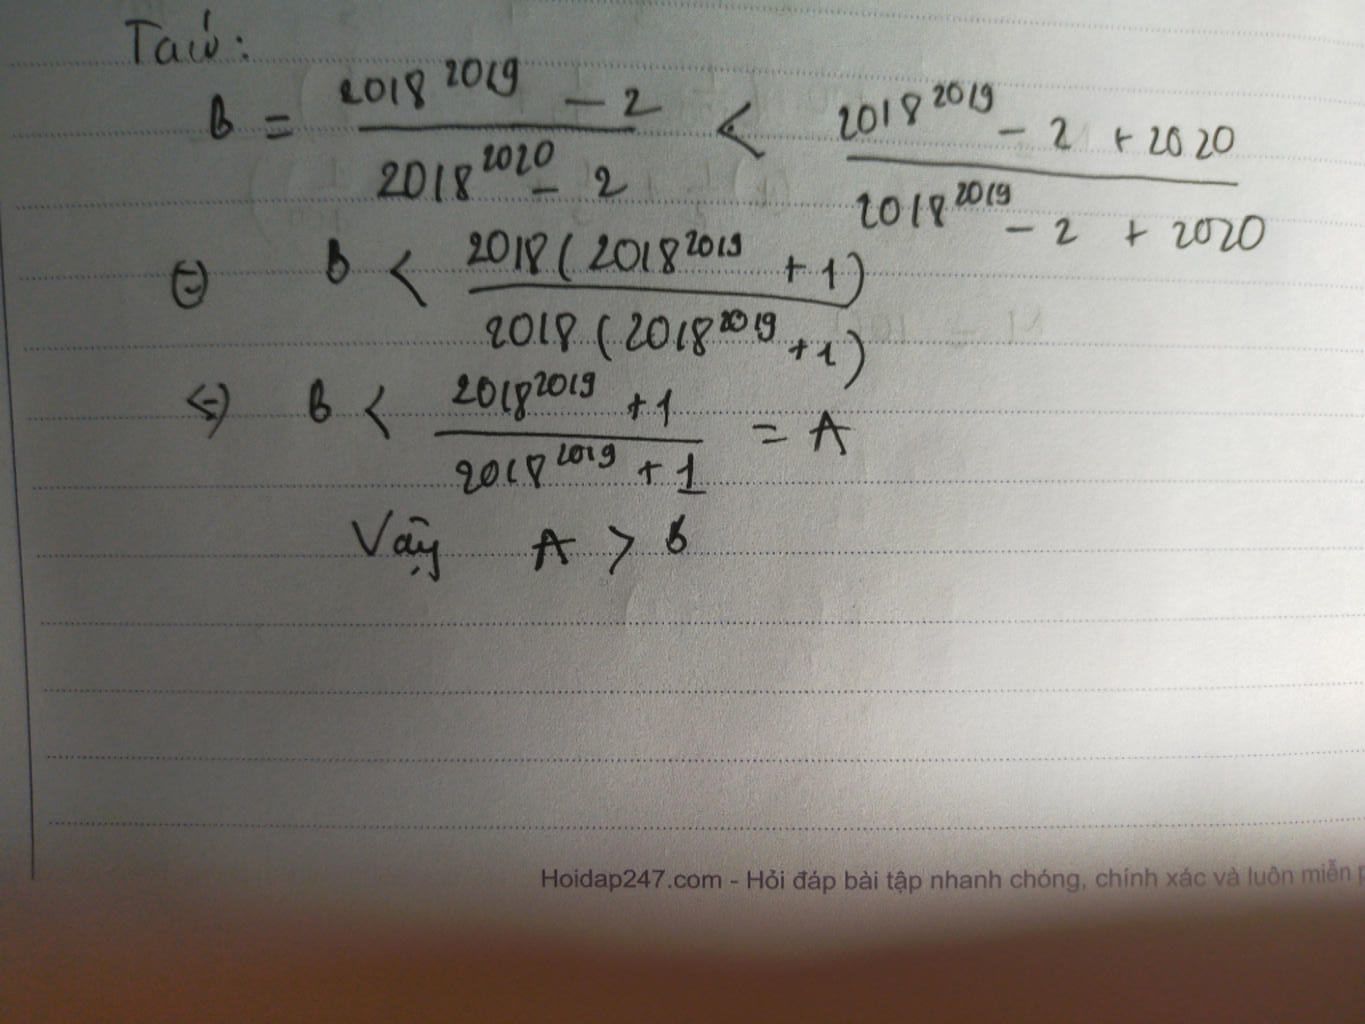 Ta có:
B = \frac{2018^{2019} - 2}{2018^{2020} - 2} < \frac{2018^{2019} - 2 + 2020}{2018^{2019} - 2 + 2020}
⇔ B < \frac{2018(2018^{2019} + 1)}{2018(2018^{2019} + 1)}
⇔ B < \frac{2018^{2019} + 1}{2018^{2019} + 1} = A
Vậy A > B
Hoidap247.com - Hỏi đáp bài tập nhanh chóng, chính xác và luôn miễn